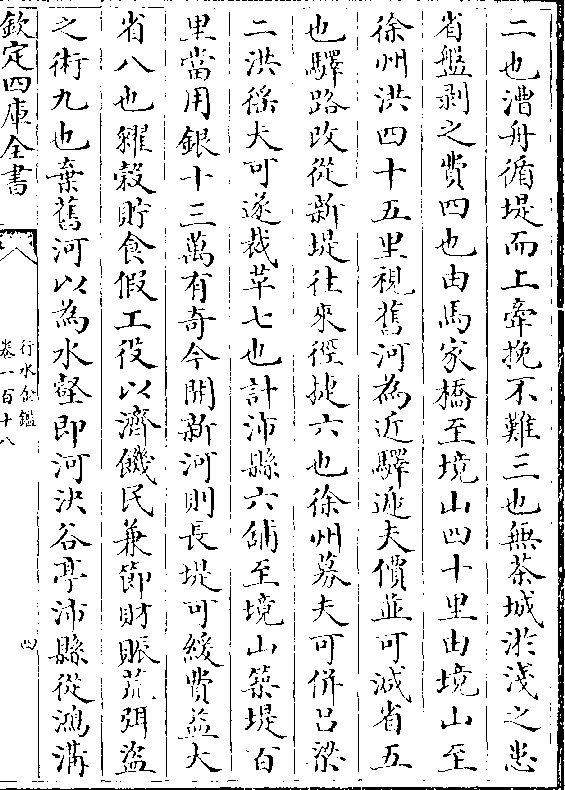 二也漕舟循堤而上牽挽不難三也無茶城淤淺之患
省盤剥之費四也由馬家橋至境山四十里由境山至
徐州洪四十五里視舊河為近驛遞夫價並可減省五
也驛路改從新堤往來徑捷六也徐州募夫可併吕梁
二洪徭夫可遂裁革七也計沛縣六舖至境山築堤百
里當用銀十三萬有奇今開新河則長堤可緩費益大
省八也糴穀貯食假工役以濟饑民兼節財賑荒弭盜
之術九也棄舊河以為水壑即河決谷亭沛縣從鴻溝
欽定四庫全書
行水金鑑
卷一百十八
四